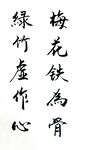 梅花鉄為骨
緑竹虚作心